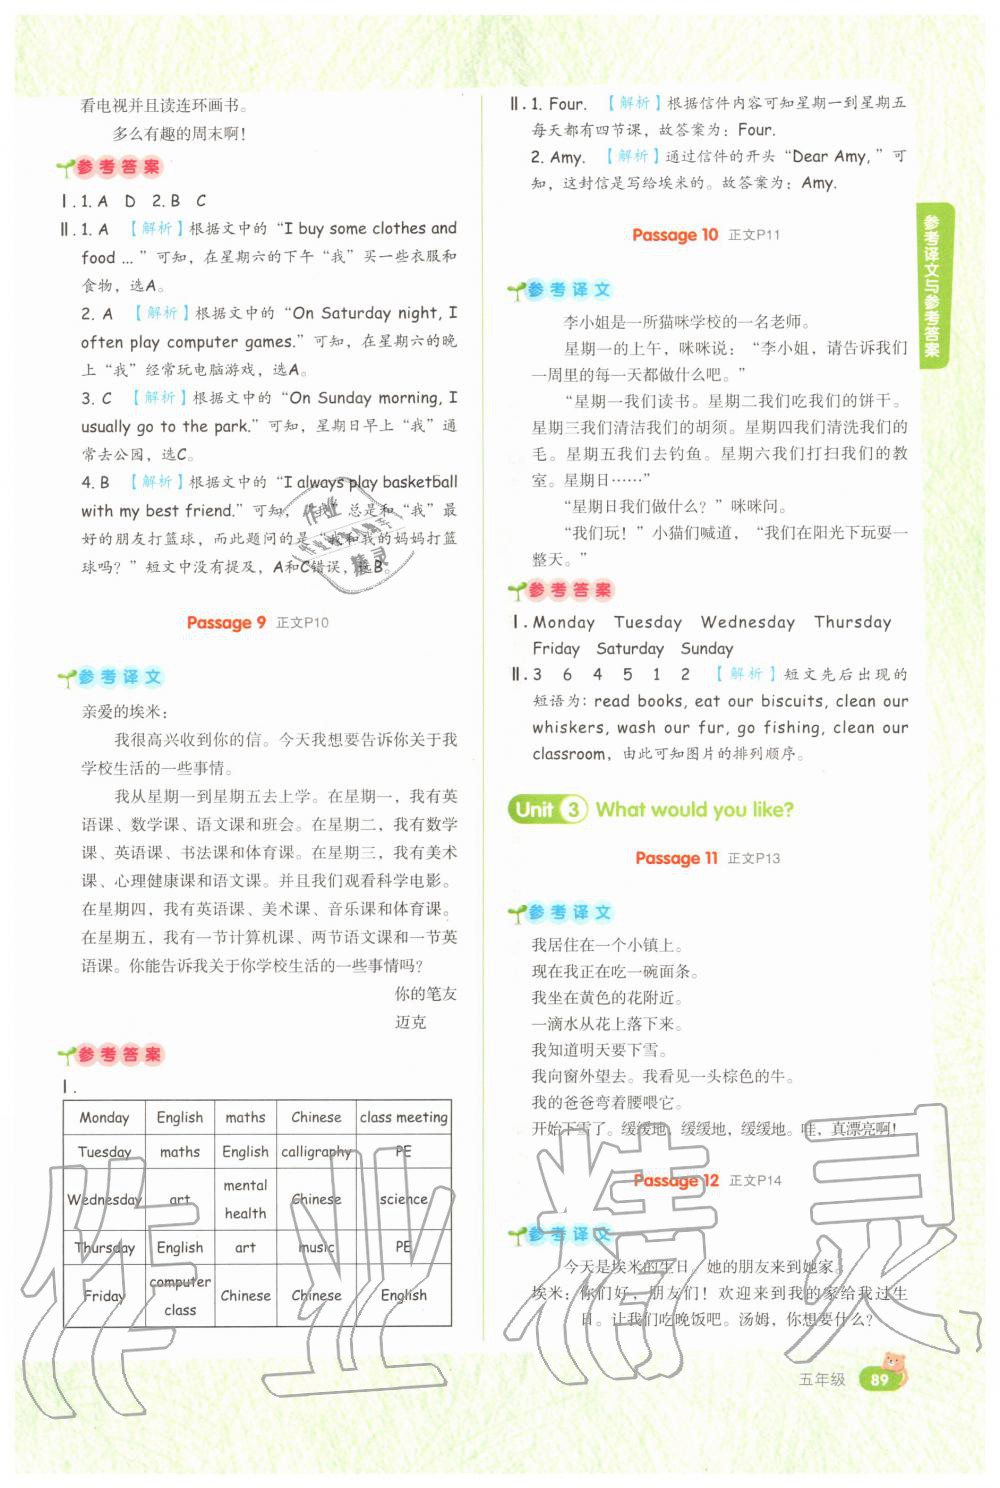 看电视并且读连环画书。
多么有趣的周末啊!
参考答案
Ⅰ. 1. A D 2. B C
Ⅱ. 1. A 【解析】根据文中的“I buy some clothes and
food ... ”可知，在星期六的下午“我”买一些衣服和
食物，选A。
2. A 【解析】根据文中的“On Saturday night, I
often play computer games.”可知，在星期六的晚
上“我”经常玩电脑游戏，选A。
3. C 【解析】根据文中的“On Sunday morning, I
usually go to the park.”可知，星期日早上“我”通
常去公园，选C。
4. B 【解析】根据文中的“I always play basketball
with my best friend.”可知，“我”总是和“我”最
好的朋友打篮球，而此题问的是“我和我的妈妈打篮
球吗？”短文中没有提及，A和C错误，选B。
Passage 9 正文P10
参考译文
亲爱的埃米：
我很高兴收到你的信。今天我想要告诉你关于我
学校生活的一些事情。
我从星期一到星期五去上学。在星期一，我有英
语课、数学课、语文课和班会。在星期二，我有数学
课、英语课、书法课和体育课。在星期三，我有美术
课、心理健康课和语文课。并且我们观看科学电影。
在星期四，我有英语课、美术课、音乐课和体育课。
在星期五，我有一节计算机课、两节语文课和一节英
语课。你能告诉我关于你学校生活的一些事情吗？
你的笔友
迈克
参考答案
Ⅰ.
Monday English maths Chinese class meeting
Tuesday maths English calligraphy PE
Wednesday art mental health Chinese science
Thursday English art music PE
Friday computer class Chinese Chinese English
Ⅱ. 1. Four. 【解析】根据信件内容可知星期一到星期五
每天都有四节课，故答案为：Four.
2. Amy. 【解析】通过信件的开头“Dear Amy, ”可
知，这封信是写给埃米的。故答案为：Amy.
Passage 10 正文P11
参考译文
李小姐是一所猫咪学校的一名老师。
星期一的上午，咪咪说：“李小姐，请告诉我们
一周里的每一天都做什么吧。”
“星期一我们读书。星期二我们吃我们的饼干。
星期三我们清洁我们的胡须。星期四我们清洗我们的
毛。星期五我们去钓鱼。星期六我们打扫我们的教
室。星期日……”
“星期日我们做什么？”咪咪问。
“我们玩！”小猫们喊道，“我们在阳光下玩耍一
整天。”
参考答案
Ⅰ. Monday Tuesday Wednesday Thursday
Friday Saturday Sunday
Ⅱ. 3 6 4 5 1 2 【解析】短文先后出现的
短语为：read books, eat our biscuits, clean our
whiskers, wash our fur, go fishing, clean our
classroom，由此可知图片的排列顺序。
Unit 3 What would you like?
Passage 11 正文P13
参考译文
我居住在一个小镇上。
现在我正在吃一碗面条。
我坐在黄色的花附近。
一滴水从花上落下来。
我知道明天要下雪。
我向窗外望去。我看见一头棕色的牛。
我的爸爸弯着腰喂它。
开始下雪了。缓缓地，缓缓地，缓缓地。哇，真漂亮啊!
Passage 12 正文P14
参考译文
今天是埃米的生日。她的朋友来到她家。
埃米：你们好，朋友们！欢迎来到我的家给我过生
日。让我们吃晚饭吧。汤姆，你想要什么？
参考译文与参考答案
五年级 89
作业精灵
作业精灵